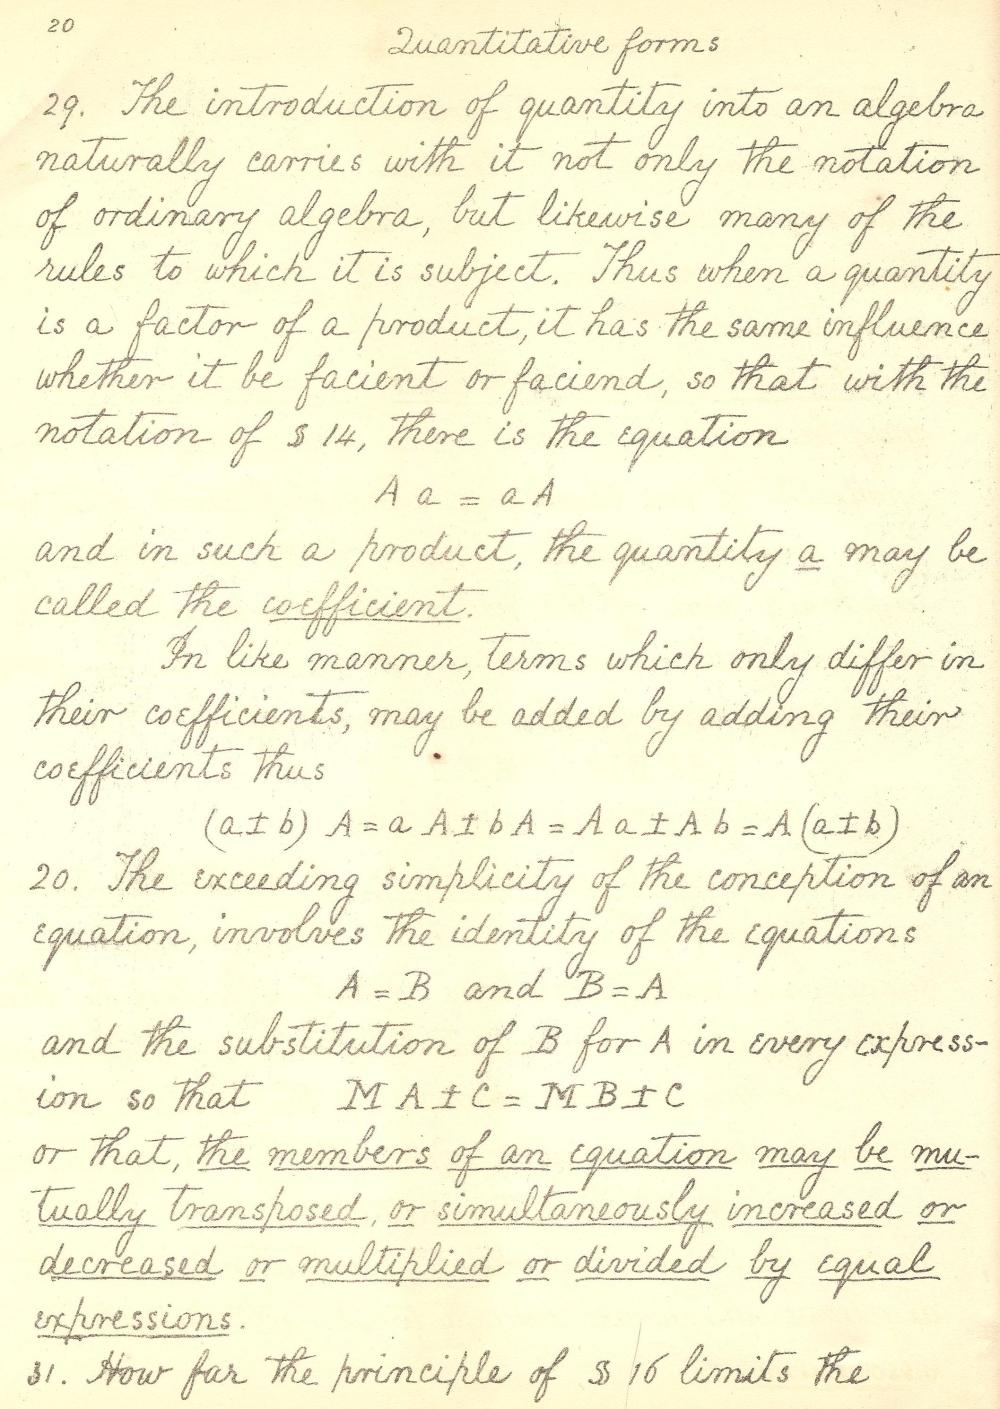 20
Quantitative forms
29. The introduction of quantity into an algebra
naturally carries with it not only the notation
of ordinary algebra, but likewise many of the
rules to which it is subject. Thus when a quantity
is a factor of a product, it has the same influence
whether it be facient or faciend, so that with the
notation of § 14, there is the equation
A a = a A
and in such a product, the quantity a may be
called the coefficient.
In like manner, terms which only differ in
their coefficients, may be added by adding their
coefficients thus
(a ± b) A = a A ± b A = A a ± A b = A (a ± b)
20. The exceeding simplicity of the conception of an
equation, involves the identity of the equations
A = B and B = A
and the substitution of B for A in every express-
ion so that M A ± C = M B ± C
or that, the members of an equation may be mu-
tually transposed, or simultaneously increased or
decreased or multiplied or divided by equal
expressions.
31. How far the principle of § 16 limits the